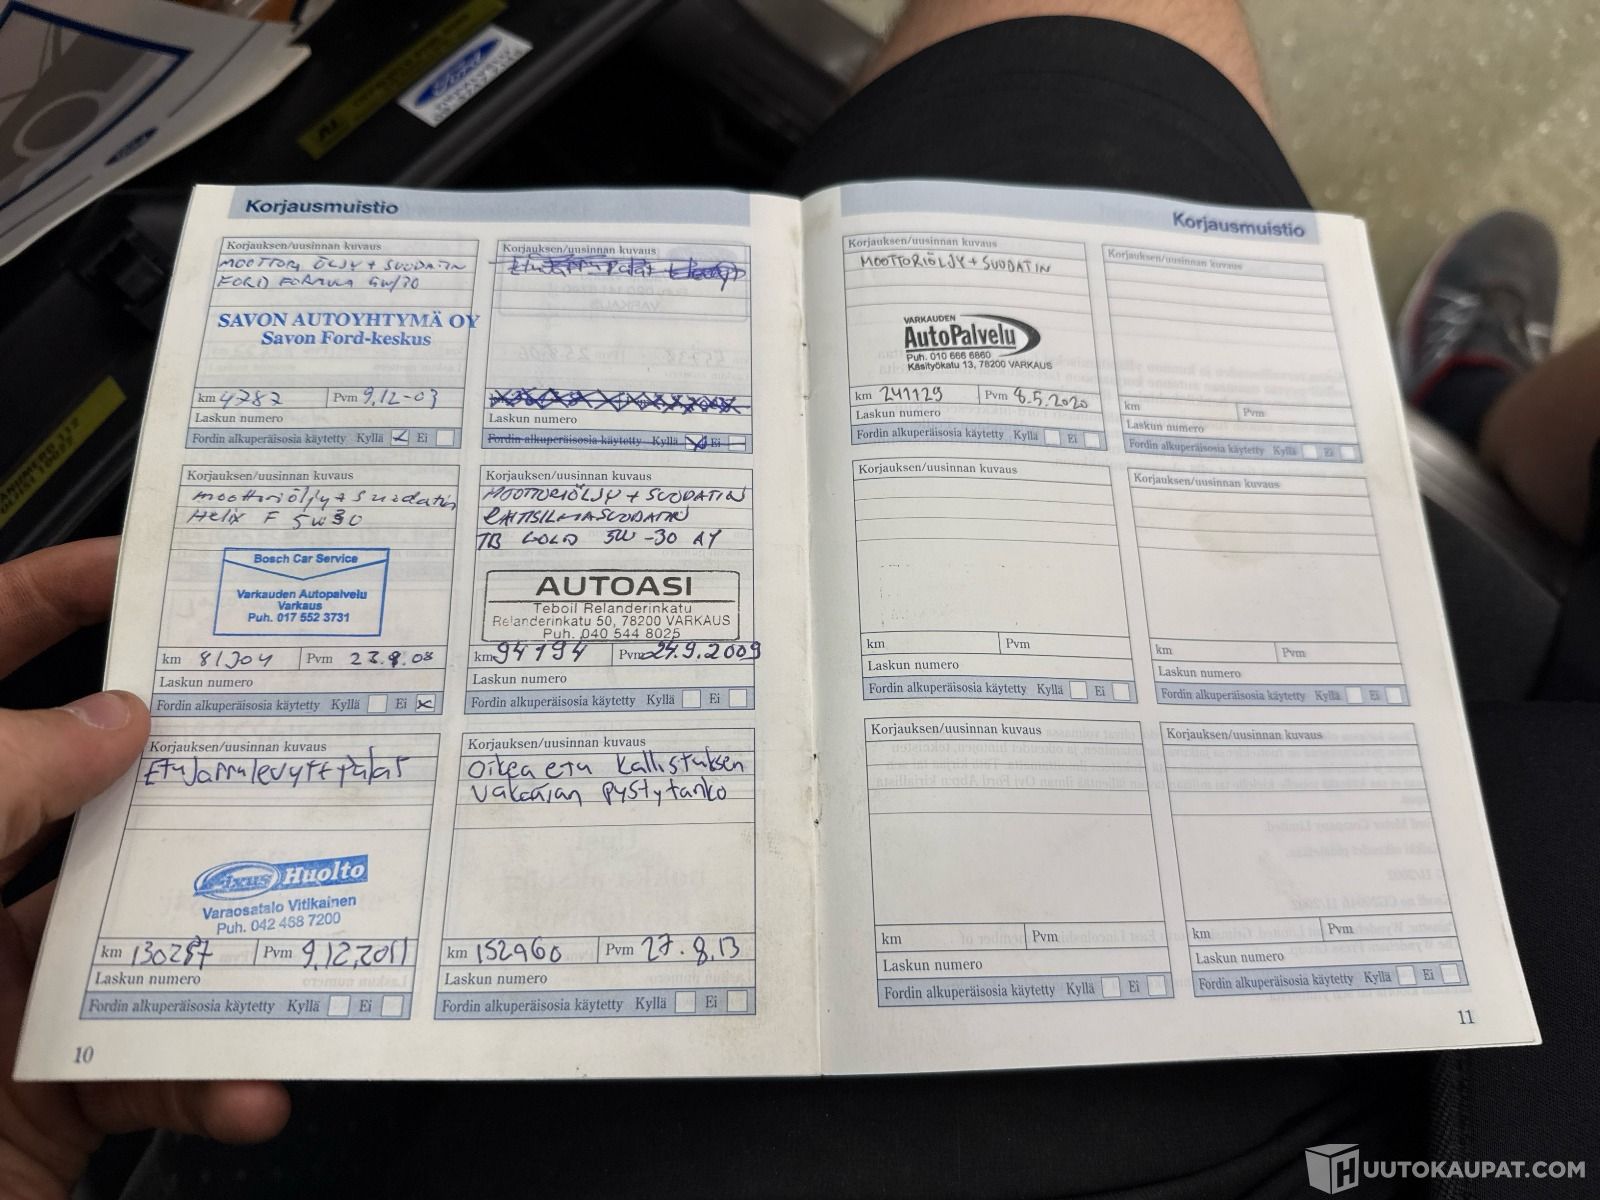 Ford
Korjausmuistio
Korjauksen/uusinnan kuvaus
MOOTTORI ÖLJY + SUODATIN
FORD FORMULA 5W/30
SAVON AUTOYHTYMÄ OY
Savon Ford-keskus
km 4787 Pvm 9.12-03
Laskun numero
Fordin alkuperäisosia käytetty Kyllä Ei
Korjauksen/uusinnan kuvaus
Laskun numero
Fordin alkuperäisosia käytetty Kyllä Ei
Korjauksen/uusinnan kuvaus
moottoriöljy + suodatin
Helix F 5w30
Bosch Car Service
Varkauden Autopalvelu
Varkaus
Puh. 017 552 3731
km Pvm
Laskun numero
Fordin alkuperäisosia käytetty Kyllä Ei
Korjauksen/uusinnan kuvaus
MOOTTORIÖLJY + SUODATIN
RAITISILMASUODATIN
TB GOLD 5W-30
AUTOASI
Teboil Relanderinkatu
Relanderinkatu 50, 78200 VARKAUS
Puh. 040 544 8025
km 94194 Pvm 24.9.2009
Laskun numero
Fordin alkuperäisosia käytetty Kyllä Ei
Korjauksen/uusinnan kuvaus
EtuJarrulevyt + palat
Fixus Huolto
Varaosatalo Vitikainen
Puh. 042 468 7200
km 130287 Pvm 9.12.2011
Laskun numero
Fordin alkuperäisosia käytetty Kyllä Ei
Korjauksen/uusinnan kuvaus
Oikea etu kallistuksen
vakaajan pystytanko
km 152960 Pvm 27.8.13
Laskun numero
Fordin alkuperäisosia käytetty Kyllä Ei
10
Korjausmuistio
Korjauksen/uusinnan kuvaus
MOOTTORIÖLJY + SUODATIN
VARKAUDEN
AutoPalvelu
Puh. 010 666 6860
Käsityökatu 13, 78200 VARKAUS
km 241129 Pvm 8.5.2020
Laskun numero
Fordin alkuperäisosia käytetty Kyllä Ei
Korjauksen/uusinnan kuvaus
km Pvm
Laskun numero
Fordin alkuperäisosia käytetty Kyllä Ei
Korjauksen/uusinnan kuvaus
km Pvm
Laskun numero
Fordin alkuperäisosia käytetty Kyllä Ei
Korjauksen/uusinnan kuvaus
km Pvm
Laskun numero
Fordin alkuperäisosia käytetty Kyllä Ei
Korjauksen/uusinnan kuvaus
km Pvm
Laskun numero
Fordin alkuperäisosia käytetty Kyllä Ei
Korjauksen/uusinnan kuvaus
km Pvm
Laskun numero
Fordin alkuperäisosia käytetty Kyllä Ei
11
HUUTOKAUPAT.COM